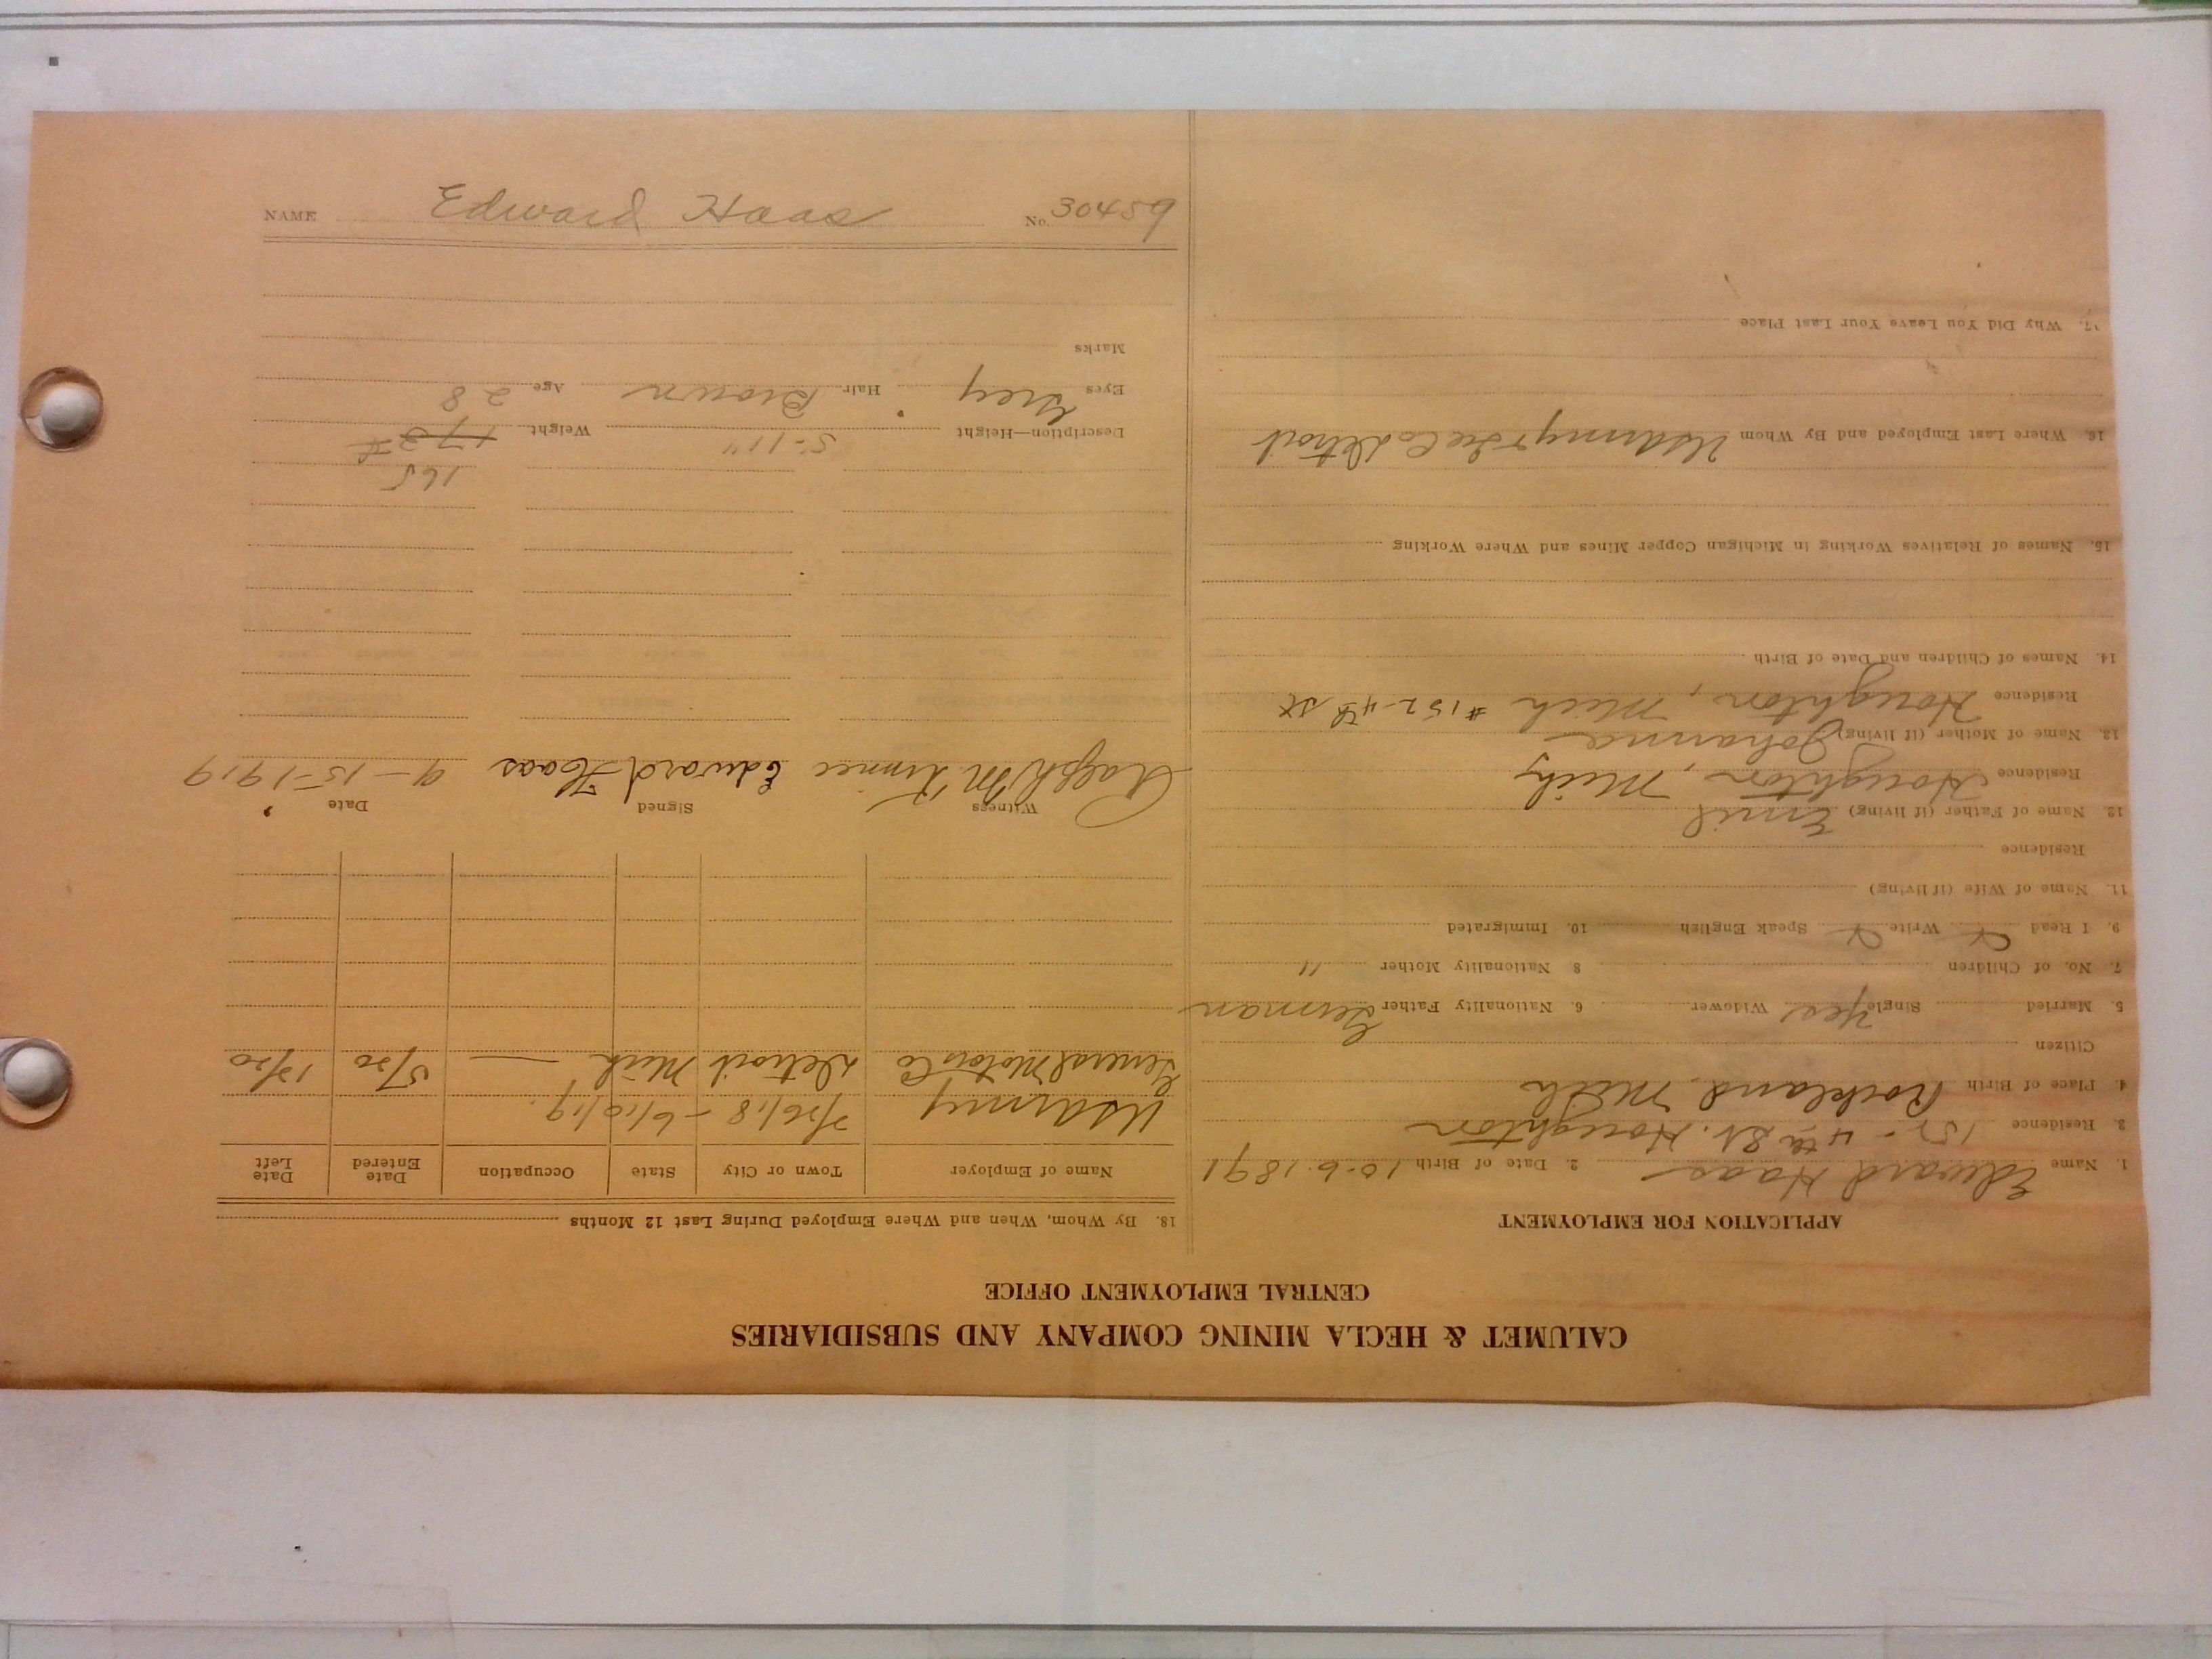 CALUMET & HECLA MINING COMPANY AND SUBSIDIARIES
CENTRAL EMPLOYMENT OFFICE
APPLICATION FOR EMPLOYMENT
1. Name Edward Haas 2. Date of Birth 10-6-1891
3. Residence 152 - 4th St. Houghton
4. Place of Birth Rockland, Mich
Citizen
5. Married Single Yes Widower 6. Nationality Father German
7. No. of Children 8 Nationality Mother "
9. I Read Write Speak English 10. Immigrated
11. Name of Wife (if living)
Residence
12. Name of Father (if living) Emil
Residence Houghton, Mich
13. Name of Mother (if living) Johanna
Residence Houghton, Mich #152-4th St
14. Names of Children and Date of Birth
15. Names of Relatives Working in Michigan Copper Mines and Where Working
16. Where Last Employed and By Whom US Army Detroit
17. Why Did You Leave Your Last Place
18. By Whom, When and Where Employed During Last 12 Months
Name of Employer Town or City State Occupation Date Entered Date Left
US Army 7/26/18 - 6/10/19.
General Motors Co Detroit Mich — 5/20 12/20
Witness Signed Date
Ralph Edward Haas 9-15-1919
165
Description—Height 5-11" Weight 173
Eyes Grey Hair Brown Age 28
Marks
NAME Edward Haas No. 30459